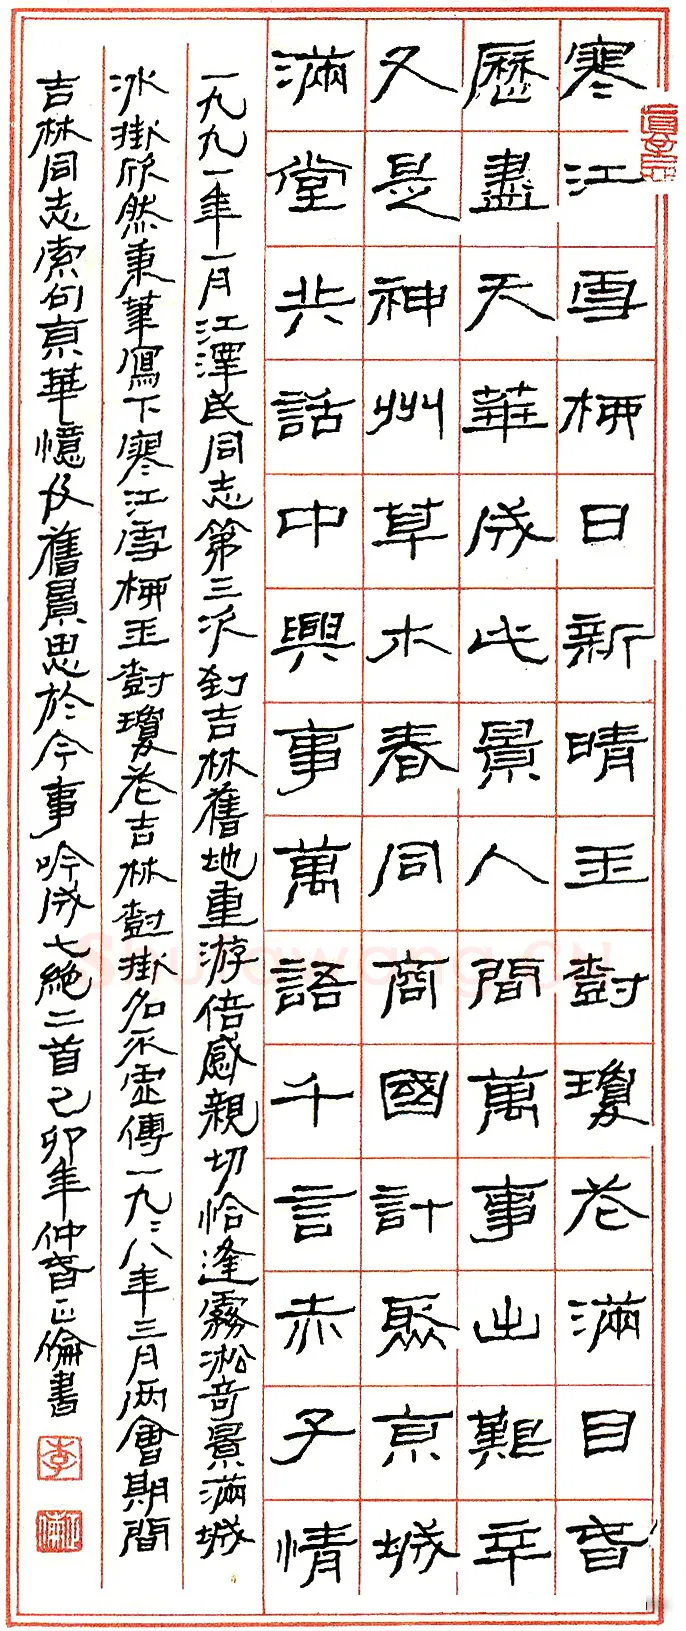 寒江雪柳日新晴玉樹瓊花滿目春
歷盡天華成此景人間萬事出艱辛
又是神州草木春同商國計聚京城
滿堂共話中興事萬語千言赤子情
一九九一年一月江澤民同志第三次到吉林舊地重游倍感親切恰逢霧淞奇景滿城
冰掛欣然秉筆寫下寒江雪柳玉樹瓊花吉林樹掛名不虛傳一九九八年三月兩會期間
吉林同志索句京華憶及舊景思於今事吟成七絕二首己卯年仲春正倫書
李
正倫
Shufawang.CN